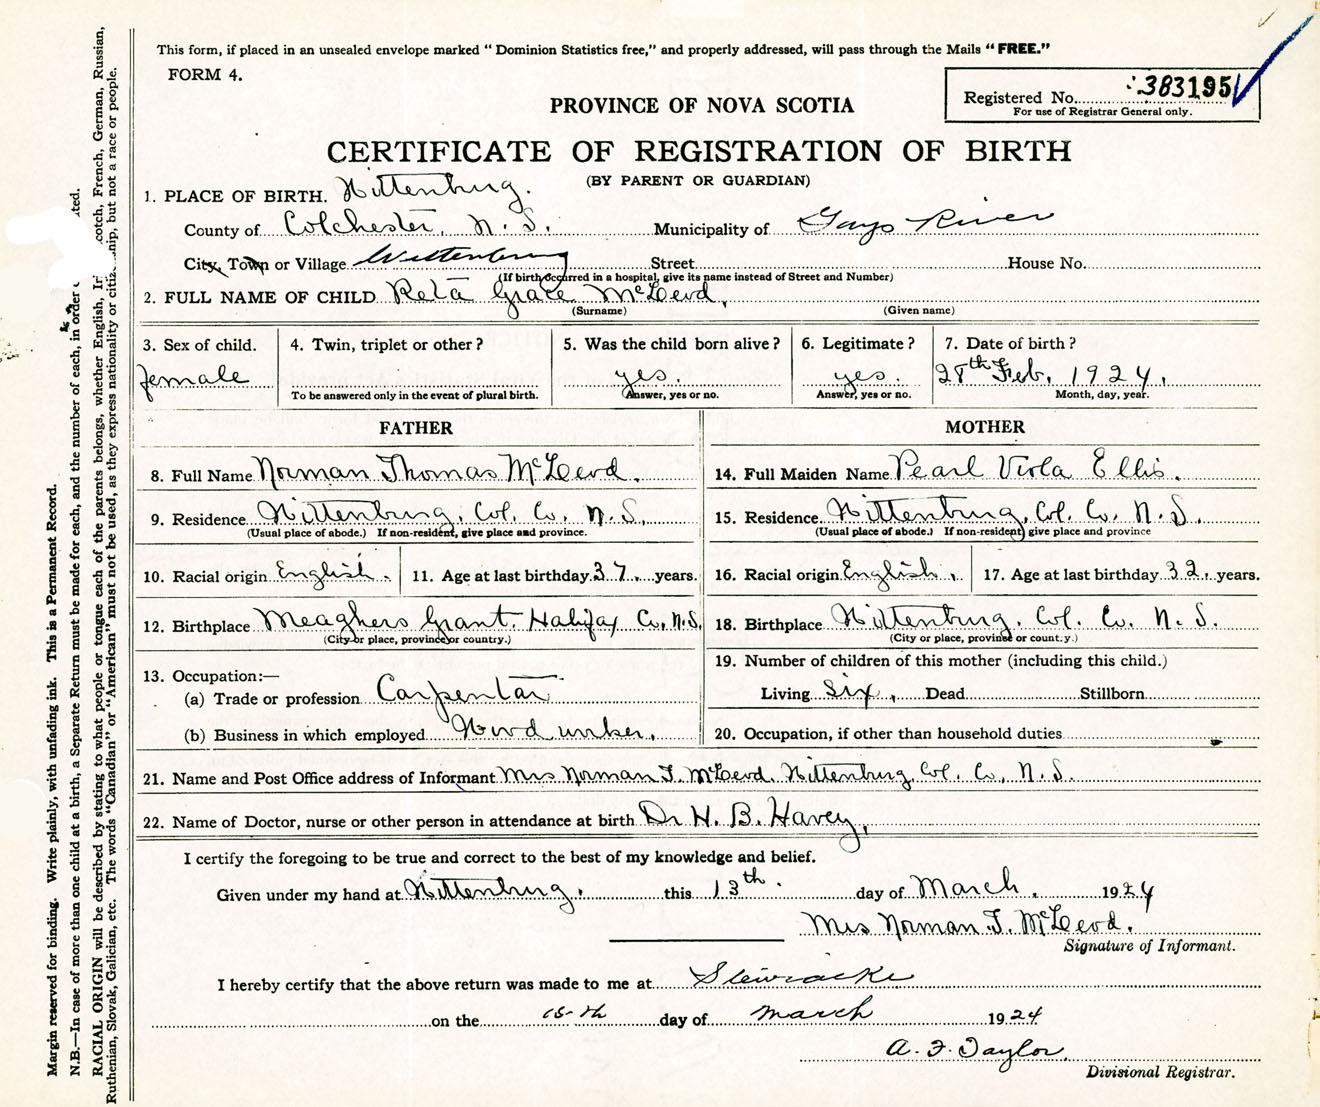 This form, if placed in an unsealed envelope marked "Dominion Statistics free," and properly addressed, will pass through the Mails "FREE."
FORM 4.
Registered No. 383195
For use of Registrar General only.
PROVINCE OF NOVA SCOTIA
CERTIFICATE OF REGISTRATION OF BIRTH
(BY PARENT OR GUARDIAN)
1. PLACE OF BIRTH. Wittenburg.
County of Colchester, N. S. Municipality of Gays River
City, Town or Village Wittenburg Street House No.
(If birth occurred in a hospital, give its name instead of Street and Number)
2. FULL NAME OF CHILD Reta Grace McLeod,
(Surname) (Given name)
3. Sex of child. 4. Twin, triplet or other? 5. Was the child born alive? 6. Legitimate? 7. Date of birth?
female yes. yes. 28th Feb. 1924.
To be answered only in the event of plural birth. Answer, yes or no. Answer, yes or no. Month, day, year.
FATHER MOTHER
8. Full Name Norman Thomas McLeod. 14. Full Maiden Name Pearl Viola Ellis.
9. Residence Wittenburg, Col. Co. N. S. 15. Residence Wittenburg, Col. Co. N. S.
(Usual place of abode.) If non-resident, give place and province. (Usual place of abode.) If non-resident, give place and province
10. Racial origin English. 11. Age at last birthday 37 years. 16. Racial origin English. 17. Age at last birthday 32 years.
12. Birthplace Meaghers Grant, Halifax Co. N.S. 18. Birthplace Wittenburg, Col. Co. N. S.
(City or place, province or country.) (City or place, province or country.)
13. Occupation:— 19. Number of children of this mother (including this child.)
(a) Trade or profession Carpentar Living six, Dead Stillborn
(b) Business in which employed Wood worker. 20. Occupation, if other than household duties
21. Name and Post Office address of Informant Mrs Norman T. McLeod. Wittenburg, Col. Co. N. S.
22. Name of Doctor, nurse or other person in attendance at birth Dr H. B. Havey,
I certify the foregoing to be true and correct to the best of my knowledge and belief.
Given under my hand at Wittenburg. this 13th. day of March. 1924
Mrs Norman T. McLeod.
Signature of Informant.
I hereby certify that the above return was made to me at Stewiacke
on the 15th day of March 1924
A. F. Taylor
Divisional Registrar.
Margin reserved for binding. Write plainly, with unfading ink. This is a Permanent Record.
N.B.—In case of more than one child at a birth, a Separate Return must be made for each, and the number of each, in order
RACIAL ORIGIN will be described by stating to what people or tongue each of the parents belongs, whether English, French, German, Russian,
Ruthenian, Slovak, Galician, etc. The words "Canadian" or "American" must not be used, as they express nationality or but not a race or people.